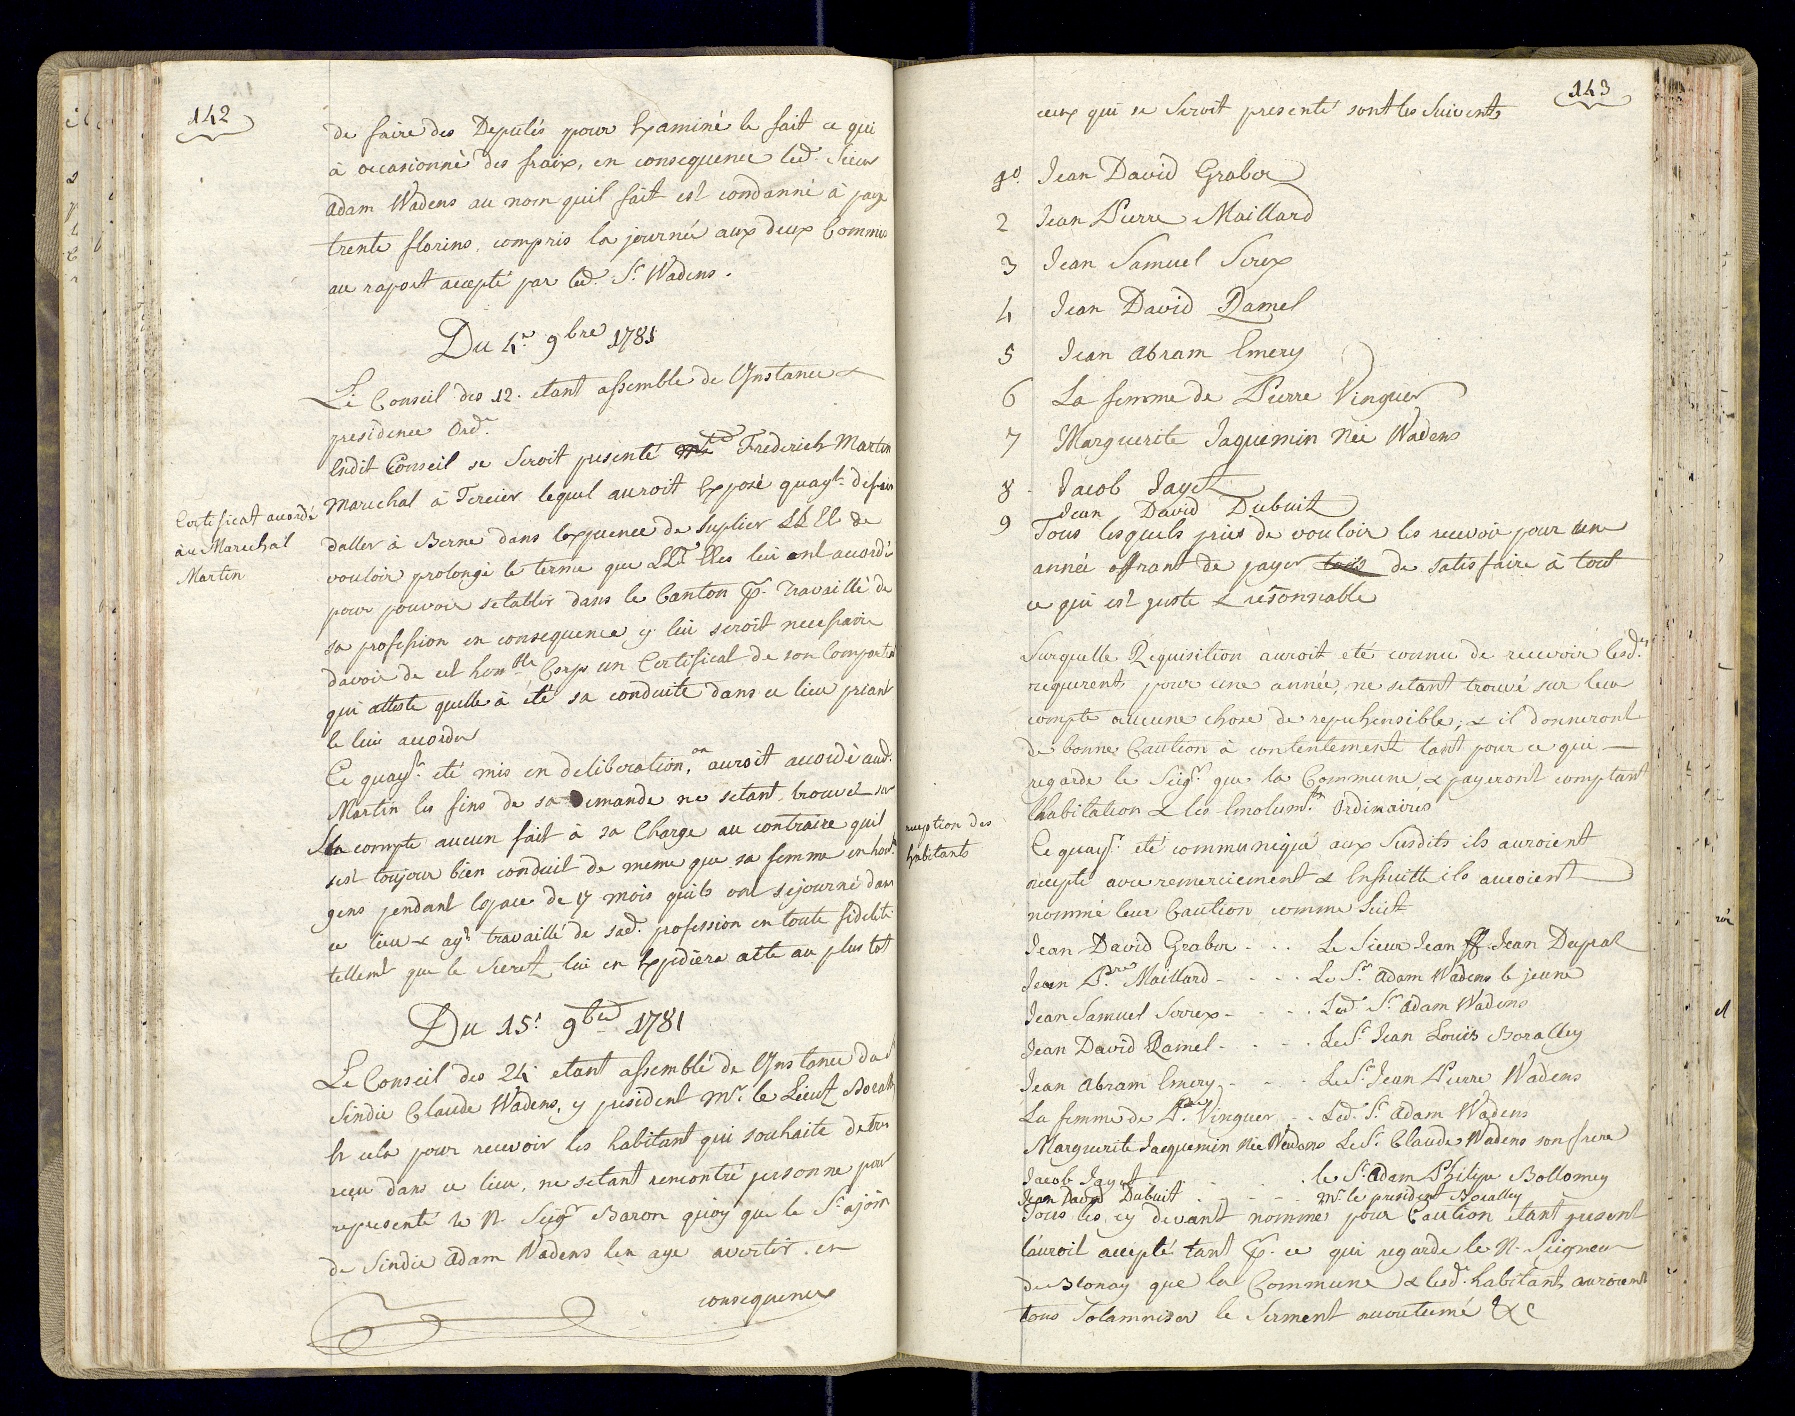 142
de faire des Deputés pour Examiné le fait ce qui
à occasionné des fraix, en consequence led. Sieur
Adam Wadens au nom quil fait est condanné à paye
trente florins, compris la journée aux deux Commis
au raport accepté par led. Sr. Wadens.
Du 4e. 9bre 1781
Le Conseil des 12. etant assemblé de L'Instance &
presidence Ordre
Endit Conseil se Seroit presenté Frederich Martin
Marechal à Tercier lequel auroit Exposé quayt. desein
daller à Berne dans lexpuence de Suplier LL EE de
vouloir prolongé le terme que LLrs EEes lui ont acordé
pour pouvoir setablir dans le Canton pr. Travaillé de
sa profession en consequence y lui seroit necessaire
davoir de cet honble Corps un Certificat de son Comportemt
qui atteste quelle à été sa conduite dans ce lieu priant
le lui acorder
Certificat acordé
au Marechal
Martin
Ce quayt. eté mis en deliberation, on auroit acordé aud.
Martin les fins de sa Demande ne setant trouvé sur
Son compte aucun fait à sa Charge au contraire quil
sest toujour bien conduit de meme que sa femme en honte
gens pendant lespace de 17 mois quils ont sejourné dans
ce lieu & ayt. travaillé de sad. profession en toute fidelité
tellemt que le Secret. lui en Expediera acte au plus tot
Du 15e. 9bre 1781
Le Conseil des 24. etant assemblé de L'Instance du Sr
Sindic Claude Wadens, y president Mr. le Lieut Boralley
Et cela pour recevoir les habitant qui souhaite detre
recu dans ce lieu, ne setant rencontré personne pour
representé le N. Seigr Baron quoy que le Sr. ajoin
de Sindic Adam Wadens len aye avertir. en
consequence
143
ceux qui se Seroit presenté sont les Suivents
1o. Jean David Graber
2 Jean Pierre Maillard
3 Jean Samuel Serex
4 Jean David Ramel
5 Jean Abram Emery
6 La femme de Pierre Vinguer
7 Marguerite Jaquemin Née Wadens
8 Jacob Jayet
9 Jean David Dubuit
Tous lesquels pries de vouloir les recevoir pour une
année offrant de payer de satisfaire à tout
ce qui est juste & résonnable
Surquelle Requisition auroit eté connu de recevoir lesd.
requerents pour une année, ne setant trouvé sur leur
compte aucune chose de reprehensible, & il donneront
de bonnes Caution à contentement tant pour ce qui
regarde le Seigr. que la Commune & payeront comptant
lhabitation & les Emolumts. Ordinaires
reception des
habitants
Ce quayt. eté communiqué aux Susdits ils auroient
accepté avec remerciement & Ensuitte ils auroient
nommé leur Caution comme Suit
Jean David Graber - . . Le Sieur Jean ff. Jean Dupral
Jean Prre Maillard - - - . Le Sr. Adam Wadens le jeune
Jean Samuel Serrex - - - . Led. Sr. Adam Wadens
Jean David Ramel - . - - . Le Sr. Jean Louis Boralley
Jean Abram Emery - - - Le Sr. Jean Pierre Wadens
La femme de Prre Vinguer . . Led. Sr. Adam Wadens
Marguerite Jacquemin Née Wadens Le Sr. Claude Wadens son frere
Jacob Jayet . . . . le Sr. Adam Philipe Bollomey
Jean David Dubuit . - - - Mr. le president Boralley
Tous les cy devant nommé pour Caution etant present
lauroit accepté tant pr. ce qui regarde le N. Seigneur
de Blonay que la Commune & lesd. habitants auroient
tous Solamniser le Serment acoutumé &c